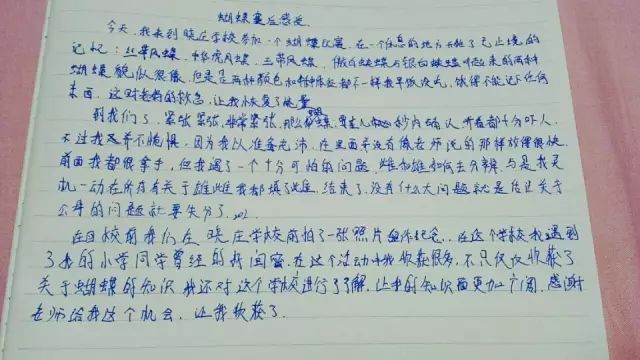 蝴蝶赛后感受
今天,我来到晓庄学校参加一个蝴蝶比赛,在一个休息的地方开始了无止境的
记忆:丝带凤蝶、中华虎凤蝶、三带凤蝶、傲白蛱蝶与银白蛱蝶听起来的两种
蝴蝶貌似很像,但是这两种颜色和特征都不一样我早饭没吃,饿得不能记下任何
东西,这时老师的救急,让我恢复了能量
到我们了,紧张紧张,非常紧张,那么多蝴蝶,要在几秒内确认,听着都十分吓人,
不过我并不怕惧,因为我以准备充沛,在里面并没有像老师说的那样放得很快,
前面我都很拿手,但我遇了一个十分可怕的问题,雌和雄如何去分辨,与是我灵
机一动在所有有关于雄雌我都填了雌,结束了,没有什么大问题就是估计关于
公母的问题就要失分了。
在回校前我们在晓庄学校前拍了一张照片留作纪念,在这个学校我遇到
了我的小学同学曾经的好闺蜜,在这个活动中我收获很多,不只仅仅收获了
关于蝴蝶的知识我还对这个学校进行了了解,让我的知识面更加广阔,感谢
老师给我这个机会,让我收获了。